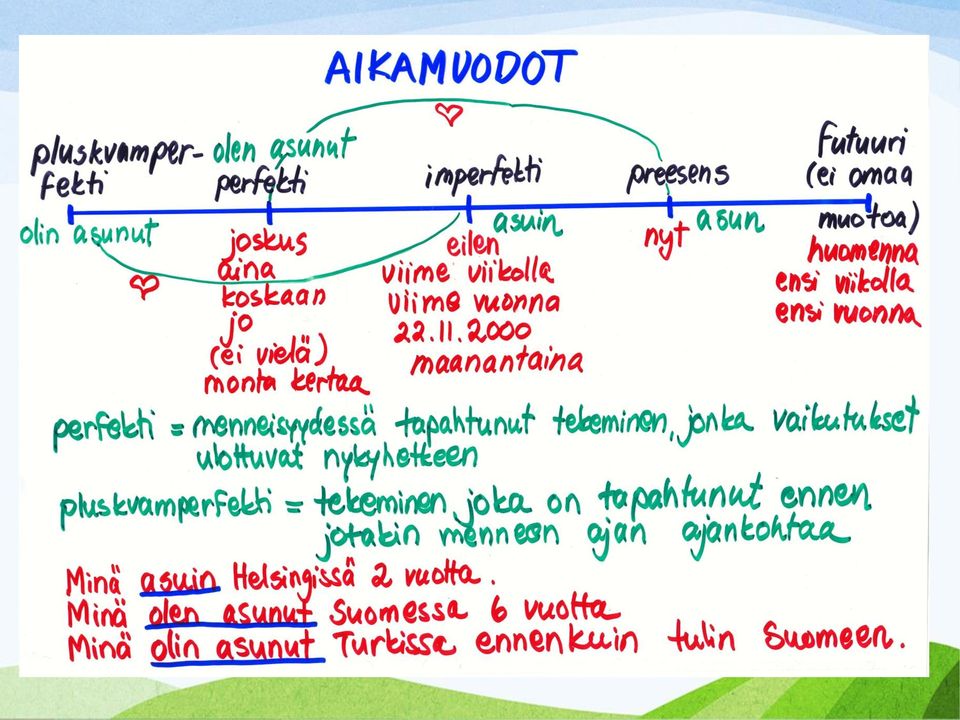 AIKAMUODOT
pluskvamper-
fekti
olin asunut
olen asunut
perfekti
joskus
aina
koskaan
jo
(ei vielä)
monta kertaa
imperfekti
asuin
eilen
viime viikolla
viime vuonna
22.11.2000
maanantaina
preesens
nyt
asun
Futuuri
(ei omaa
muotoa)
huomenna
ensi viikolla
ensi vuonna
perfekti = menneisyydessä tapahtunut tekeminen, jonka vaikutukset
ulottuvat nykyhetkeen
pluskvamperfekti = tekeminen, joka on tapahtunut ennen
jotakin menneen ajan ajankohtaa
Minä asuin Helsingissä 2 vuotta.
Minä olen asunut Suomessa 6 vuotta
Minä olin asunut Turkissa ennenkuin tulin Suomeen.